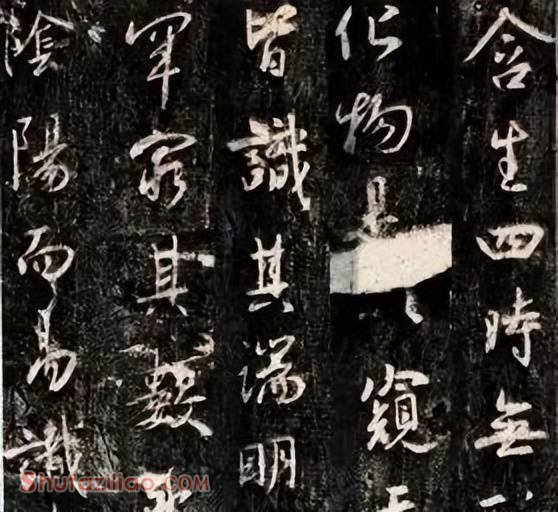 含生四時無
化物是以窺天
皆識其端明
罕窮其數然
陰陽而易識
Shufaziliao.com